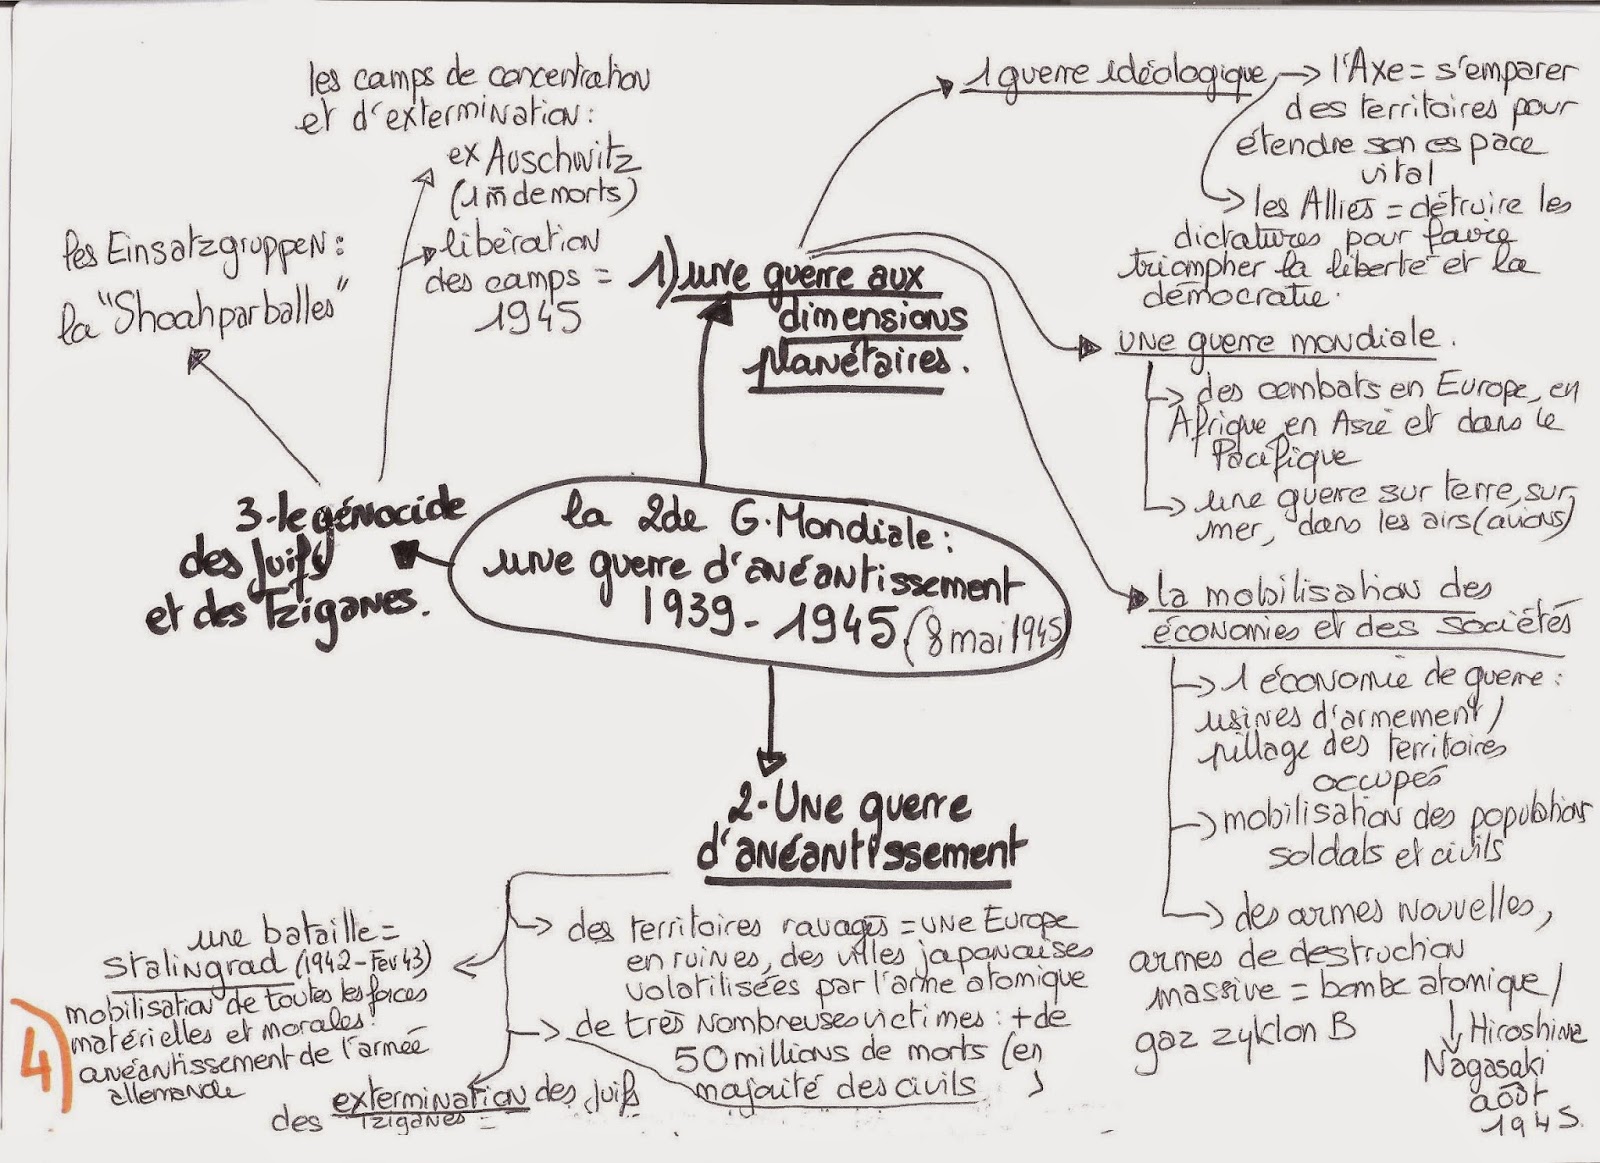 la 2de G. Mondiale :
une guerre d'anéantissement
1939 - 1945 (8 mai 1945)
1) une guerre aux
dimensions
planétaires.
1 guerre idéologique
l'Axe = s'emparer
des territoires pour
étendre son espace
vital
les Alliés = détruire les
dictatures pour faire
triompher la liberté et la
démocratie.
une guerre mondiale.
des combats en Europe, en
Afrique en Asie et dans le
Pacifique
une guerre sur terre, sur
mer, dans les airs (avions)
la mobilisation des
économies et des sociétés
1 économie de guerre :
usines d'armement /
pillage des territoires
occupés
mobilisation des populations
soldats et civils
des armes nouvelles,
armes de destruction
massive = bombe atomique /
gaz zyklon B
Hiroshima
Nagasaki
août
1945.
2 - Une guerre
d'anéantissement
des territoires ravagés = une Europe
en ruines, des villes japonaises
volatilisées par l'arme atomique
de très nombreuses victimes : + de
50 millions de morts (en
majorité des civils)
une bataille =
Stalingrad (1942 - Fev 43)
mobilisation de toutes les forces
matérielles et morales.
anéantissement de l'armée
allemande
extermination des Juifs
des Tziganes =
3 - le génocide
des Juifs
et des Tziganes.
les Einsatzgruppen :
la "Shoah par balles"
les camps de concentration
et d'extermination :
ex Auschwitz
(1 m de morts)
libération
des camps =
1945
4)